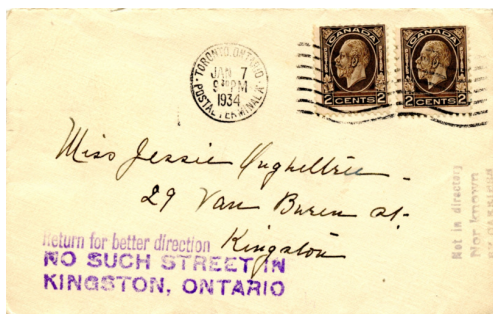 TORONTO, ONTARIO
JAN 7
PM
1934
POSTAL TERMINAL A
CANADA
2 CENTS 2
CANADA
2 CENTS 2
Miss Jessie
29 Van Buren St.
Kingston
Return for better direction
NO SUCH STREET IN
KINGSTON, ONTARIO
Not in directory
Not known